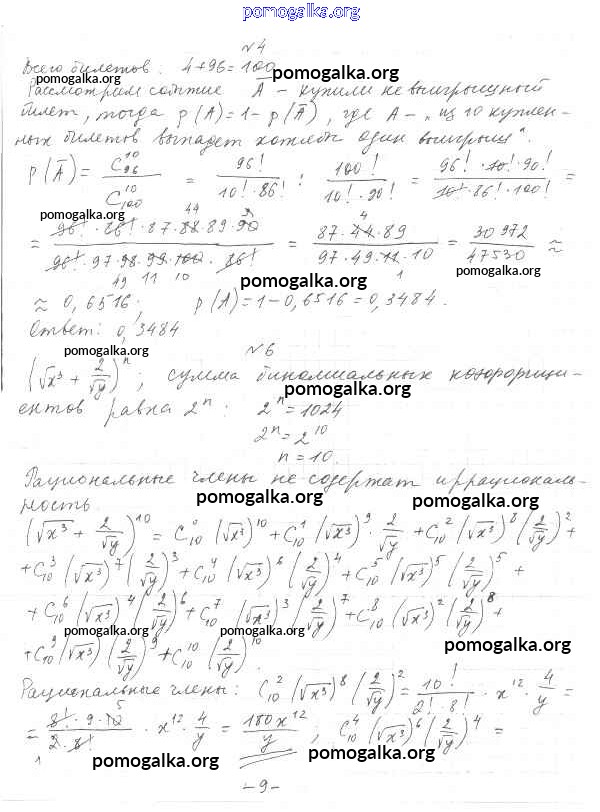 pomogalka.org
№4
Всего билетов: 4+96=100
Рассмотрим событие Ā - купили не выигрышный
билет, тогда p(A)=1-p(Ā), где A - „из 10 куплен-
ных билетов выпадет хотя бы один выигрыш".
p(Ā) = C₉₆¹⁰ / C₁₀₀¹⁰ = 96!/(10!·86!) : 100!/(10!·90!) = (96!·10!·90!)/(10!·86!·100!) =
pomogalka.org
= (96!·86!·87·88·89·90)/(96!·97·98·99·100·86!) = (87·44·89)/(97·49·11·10) = 30972/47530 ≈
pomogalka.org
pomogalka.org
≈ 0,6516; p(A)=1-0,6516=0,3484.
Ответ: 0,3484
pomogalka.org
№6
(√x³ + 2/√y)ⁿ; сумма биномиальных коэффици-
pomogalka.org
ентов равна 2ⁿ: 2ⁿ=1024
2ⁿ=2¹⁰
n=10.
Рациональные члены не содержат иррациональ-
ность.
pomogalka.org
pomogalka.org
(√x³ + 2/√y)¹⁰ = C₁₀⁰(√x³)¹⁰ + C₁₀¹(√x³)⁹·2/√y + C₁₀²(√x³)⁸(2/√y)² +
+ C₁₀³(√x³)⁷(2/√y)³ + C₁₀⁴(√x³)⁶(2/√y)⁴ + C₁₀⁵(√x³)⁵(2/√y)⁵ +
+ C₁₀⁶(√x³)⁴(2/√y)⁶ + C₁₀⁷(√x³)³(2/√y)⁷ + C₁₀⁸(√x³)²(2/√y)⁸ +
pomogalka.org
pomogalka.org
pomogalka.org
+ C₁₀⁹(√x³)(2/√y)⁹ + C₁₀¹⁰(2/√y)¹⁰.
Рациональные члены: C₁₀²(√x³)⁸(2/√y)² = 10!/(2!·8!)·x¹²·4/y =
= (8!·9·10)/(2·8!)·x¹²·4/y = 180x¹²/y; C₁₀⁴(√x³)⁶(2/√y)⁴ =
pomogalka.org
pomogalka.org
-9-